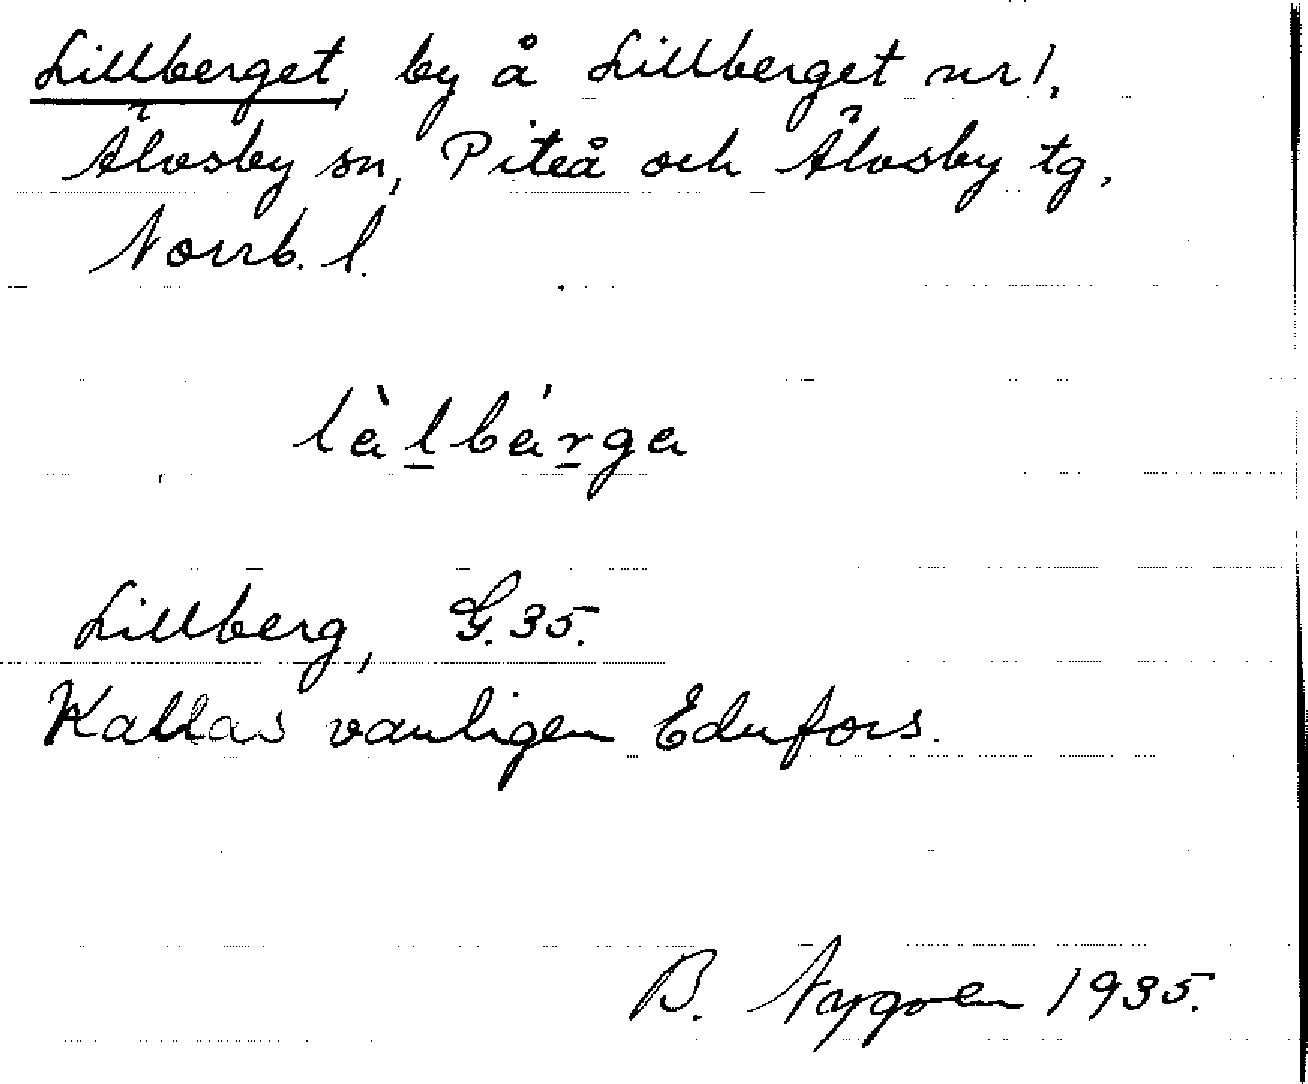 Lillberget, by å Lillberget nr 1,
Älvsby sn, Piteå och Älvsby tg,
Norrb. l.
làl̲bár̲ga
Lillberg, G. 35.
Kallas vanligen Edefors.
B. Nygren 1935.